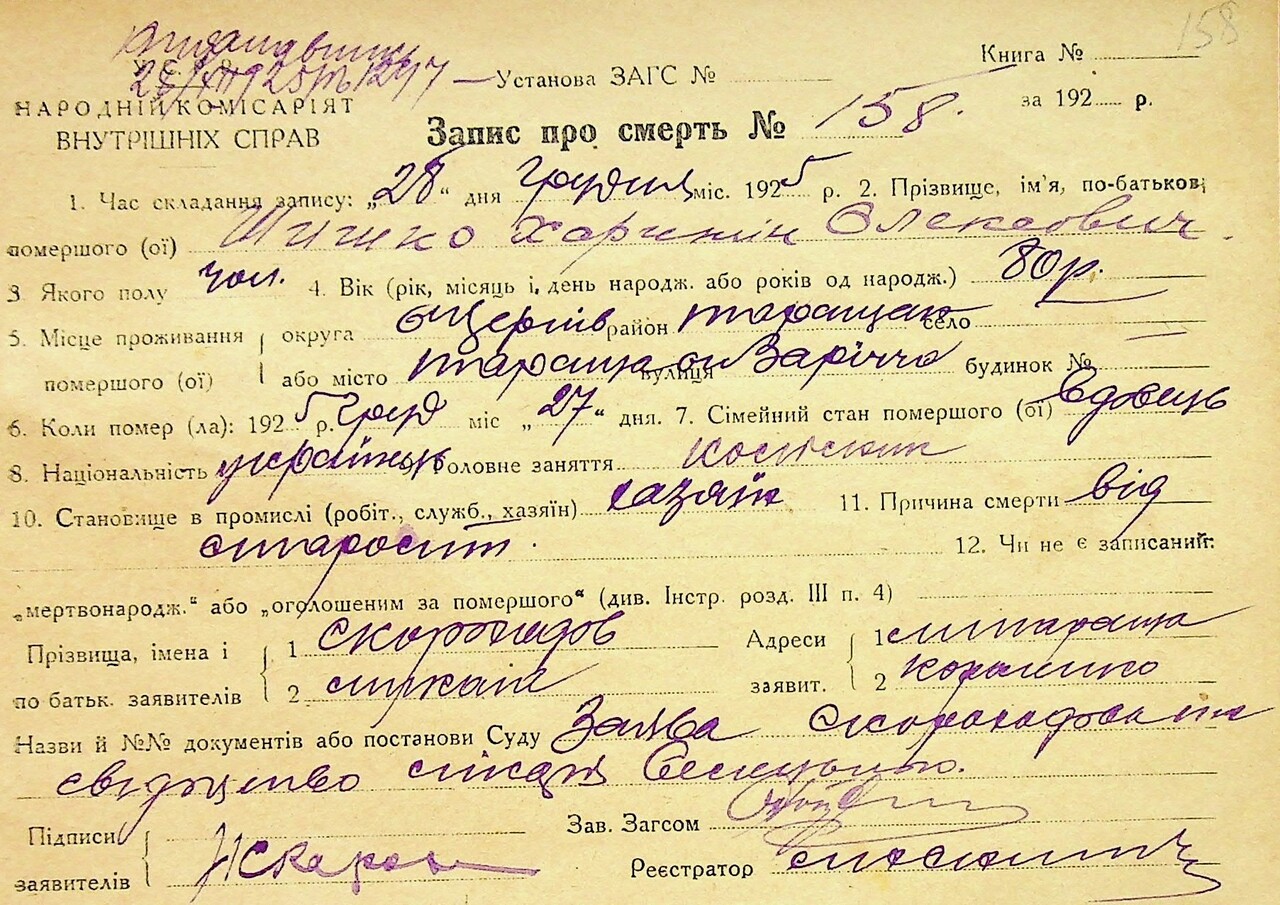 158
Книга №
У.С.Р.Р. Установа ЗАГС №
НАРОДНІЙ КОМІСАРІЯТ за 192 р.
ВНУТРІШНІХ СПРАВ Запис про смерть № 158.
1. Час складання запису: „28" дня грудня міс. 1925 р. 2. Прізвище, ім'я, по-батькові
помершого (ої) Олексович
3. Якого полу чол. 4. Вік (рік, місяць і день народж. або років од народж.) 80 р.
5. Місце проживання округа район таращан село
помершого (ої) або місто вулиця Заріччя будинок №
6. Коли помер (ла): 1925 р. груд міс „27" дня. 7. Сімейний стан помершого (ої) вдовець
8. Національність українець 9. Головне заняття
10. Становище в промислі (робіт., служб., хазяїн) хазяїн 11. Причина смерти від
старости. 12. Чи не є записаний:
„мертвонародж." або „оголошеним за помершого" (див. Інстр. розд. III п. 4)
Прізвища, імена і 1 Скороходов Адреси 1 м Тараща
по батьк. заявителів 2 заявит. 2
Назви й №№ документів або постанови Суду Заява Скороходова та
свідоцтво
Підписи Зав. Загсом
заявителів Реєстратор